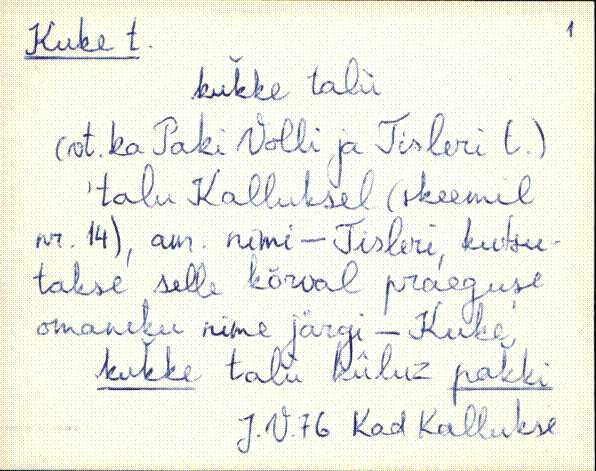 Kuke t. 1
kuk̆ke talù
(vt. ka Paki Volli ja Tisleri t.)
'talu Kalluksel (skeemil
nr. 14), am. nimi – Tisleri, kutsu-
takse selle kõrval praeguse
omaniku nime järgi – Kuke,'
kuk̆ke talù kûluz pak̆ki
J.V.76 Kad Kallukse